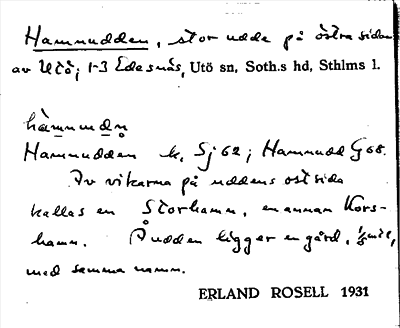 Hamnudden, stor udde på östra sidan
av Utö; 1-3 Edesnäs, Utö sn, Soth.s hd, Sthlms l.
Hamnudden k. Sj 62; Hamnudd G 68.
Av vikarna på uddens ostsida
kallas en Storhamn, en annan Kors-
hamn. På udden ligger en gård,
med samma namn.
ERLAND ROSELL 1931